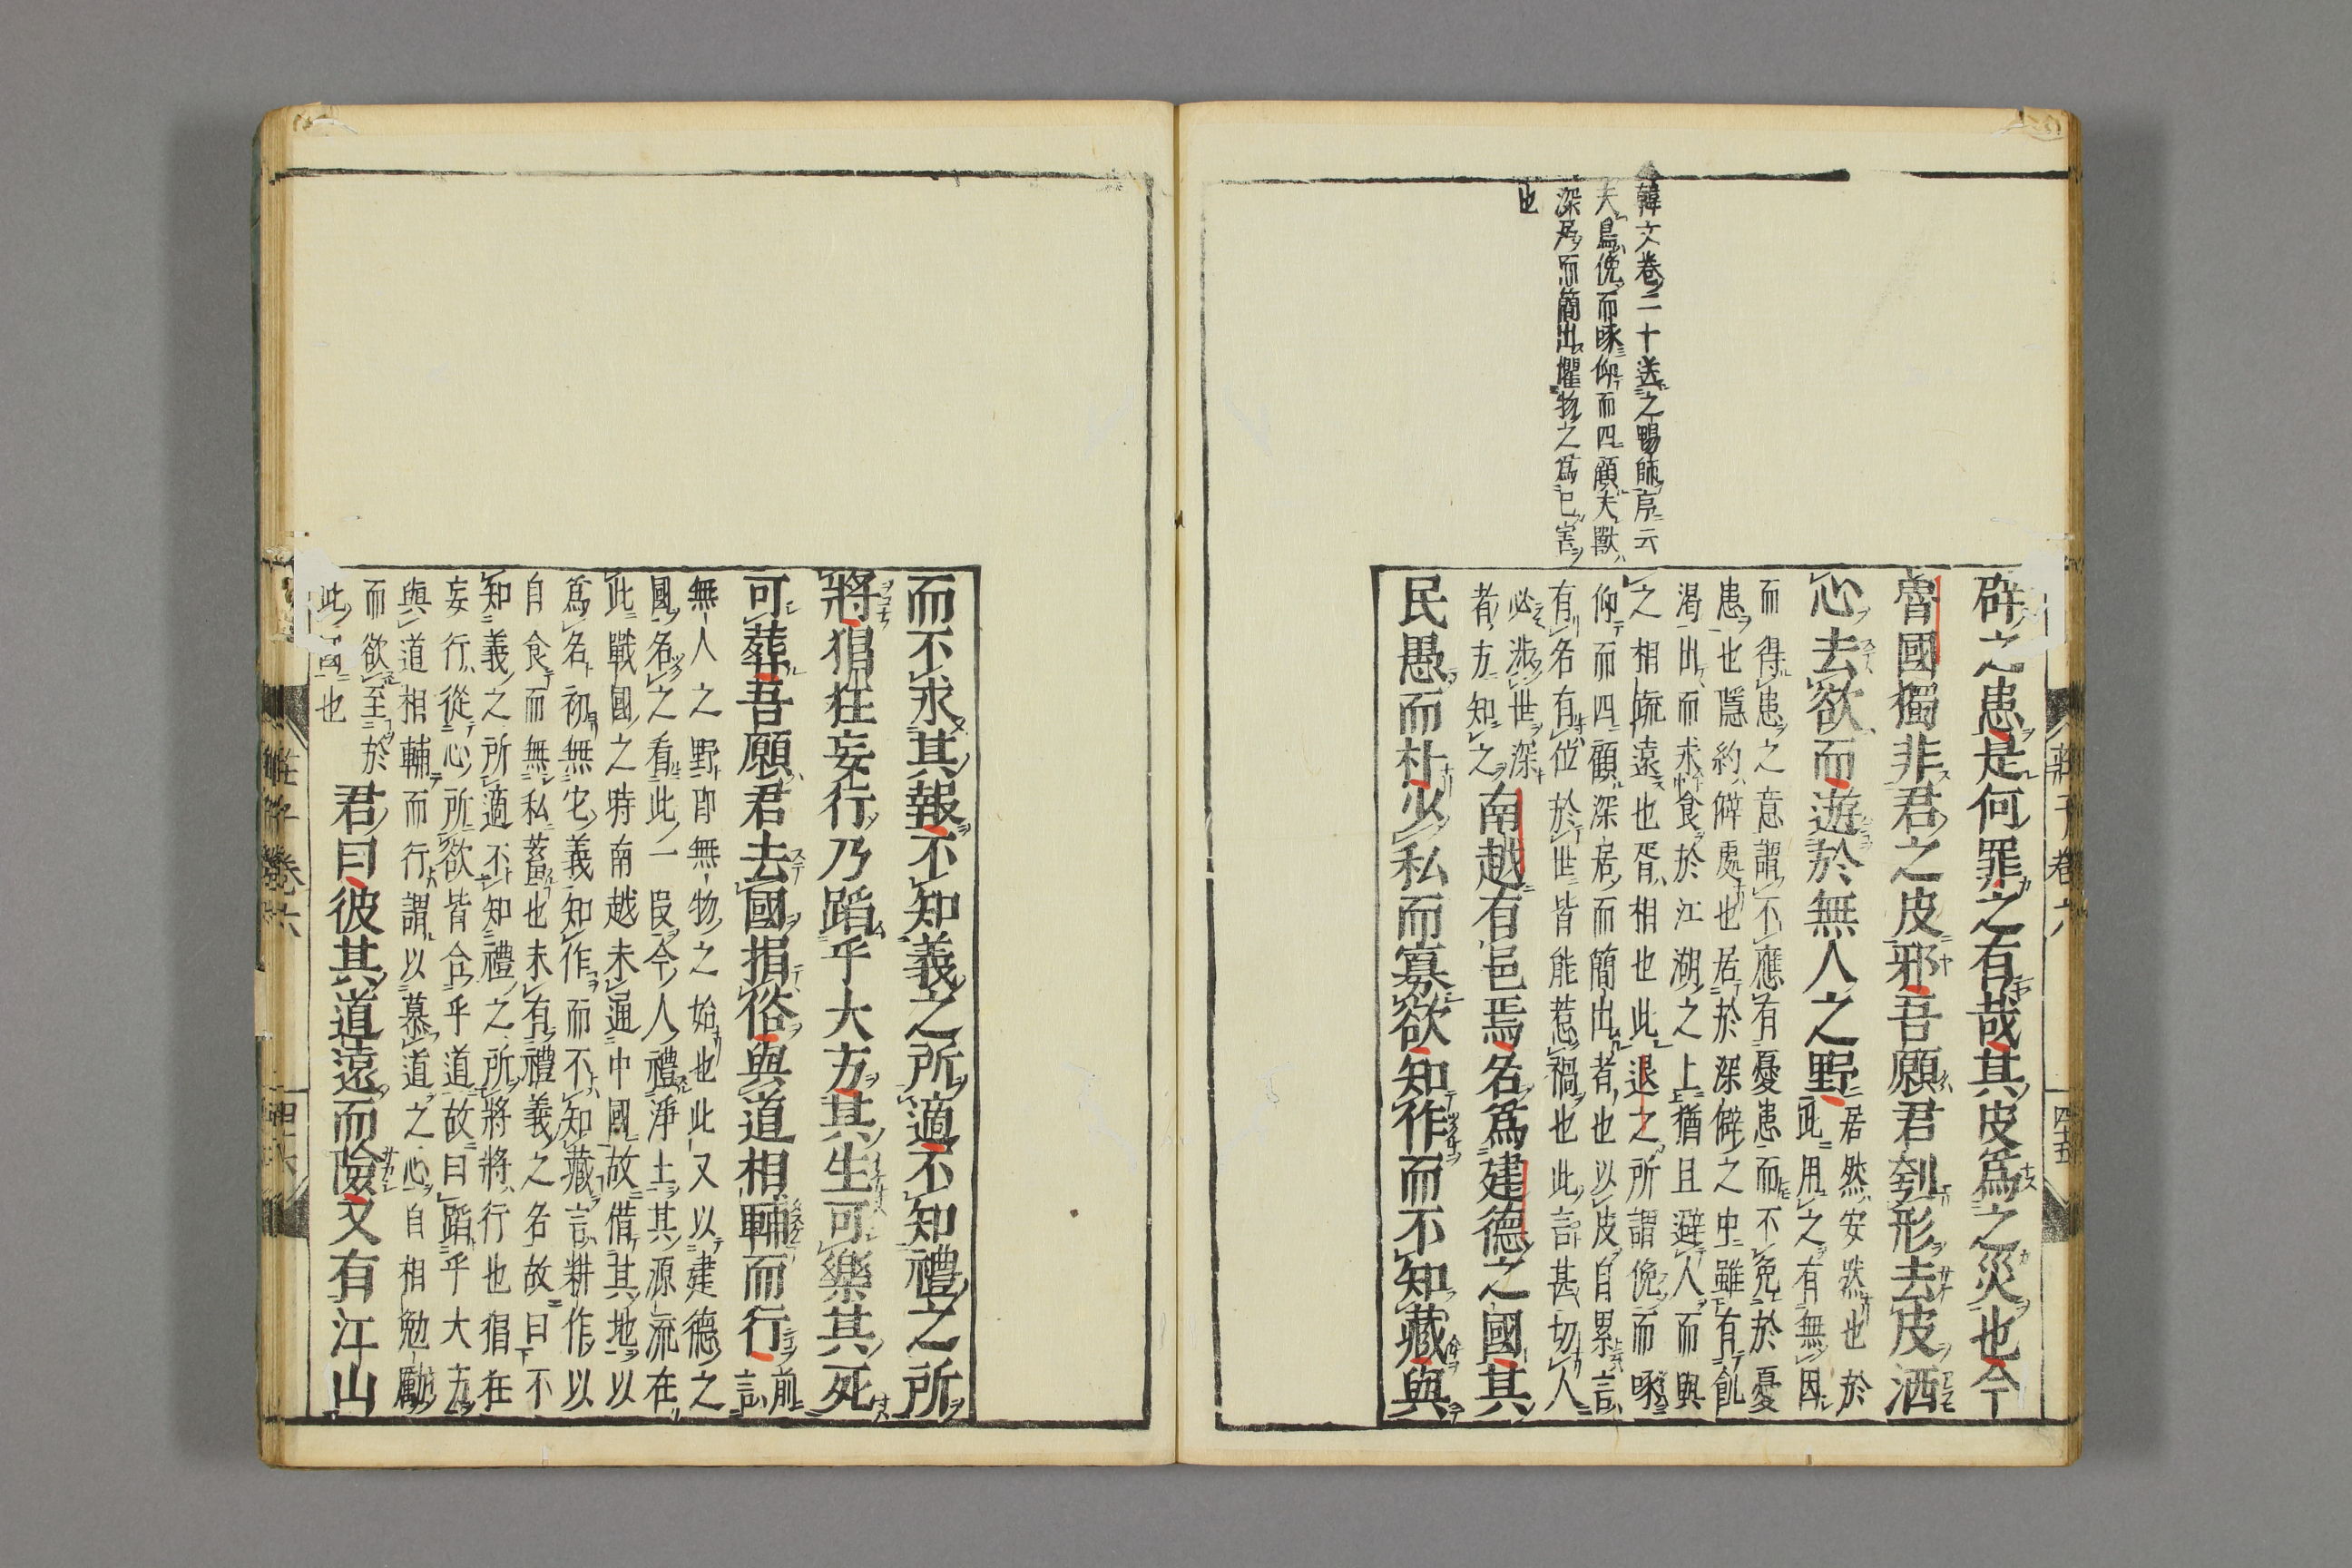 韓文卷二十送之暢師序云
夫鳥俛而啄仰而四顧夫獸
深居而簡出懼物之爲己害
也
辟之患是何罪之有哉其皮爲之災也今
魯國獨非君之皮邪吾願君刳形去皮洒
心去欲而遊於無人之野
居然安然也於
此用之有無因
而得患之意謂不應有憂患而不免於憂
患也隱約僻處也居於深僻之中雖有飢
渴出而求食於江湖之上猶且避人而與
之相疏遠也胥相也此退之所謂俛而啄
仰而四顧深居而簡出者也以皮自累言
有名有位於世皆能惹禍也此言甚切人
必涉世深
者方知之
南越有邑焉名爲建德之國其
民愚而朴少私而寡欲知作而不知藏與
莊子卷六
四十五
而不求其報不知義之所適不知禮之所
將猖狂妄行乃蹈乎大方其生可樂其死
可葬吾願君去國捐俗與道相輔而行
前
言
無人之野即無物之始也此又以建德之
國名之看此一段今人禮淨土其源流在
此戰國之時南越未通中國故借其地以
爲名初無它義知作而不知藏言耕作以
自食而無私蓄也未有禮義之名故曰不
知義之所適不知禮之所將將行也猖狂
妄行從心所欲皆合乎道故曰蹈乎大方
與道相輔而行謂以慕道之心自相勉勵
而欲至於
此國也
君曰彼其道遠而險又有江山
莊子卷六
四十六